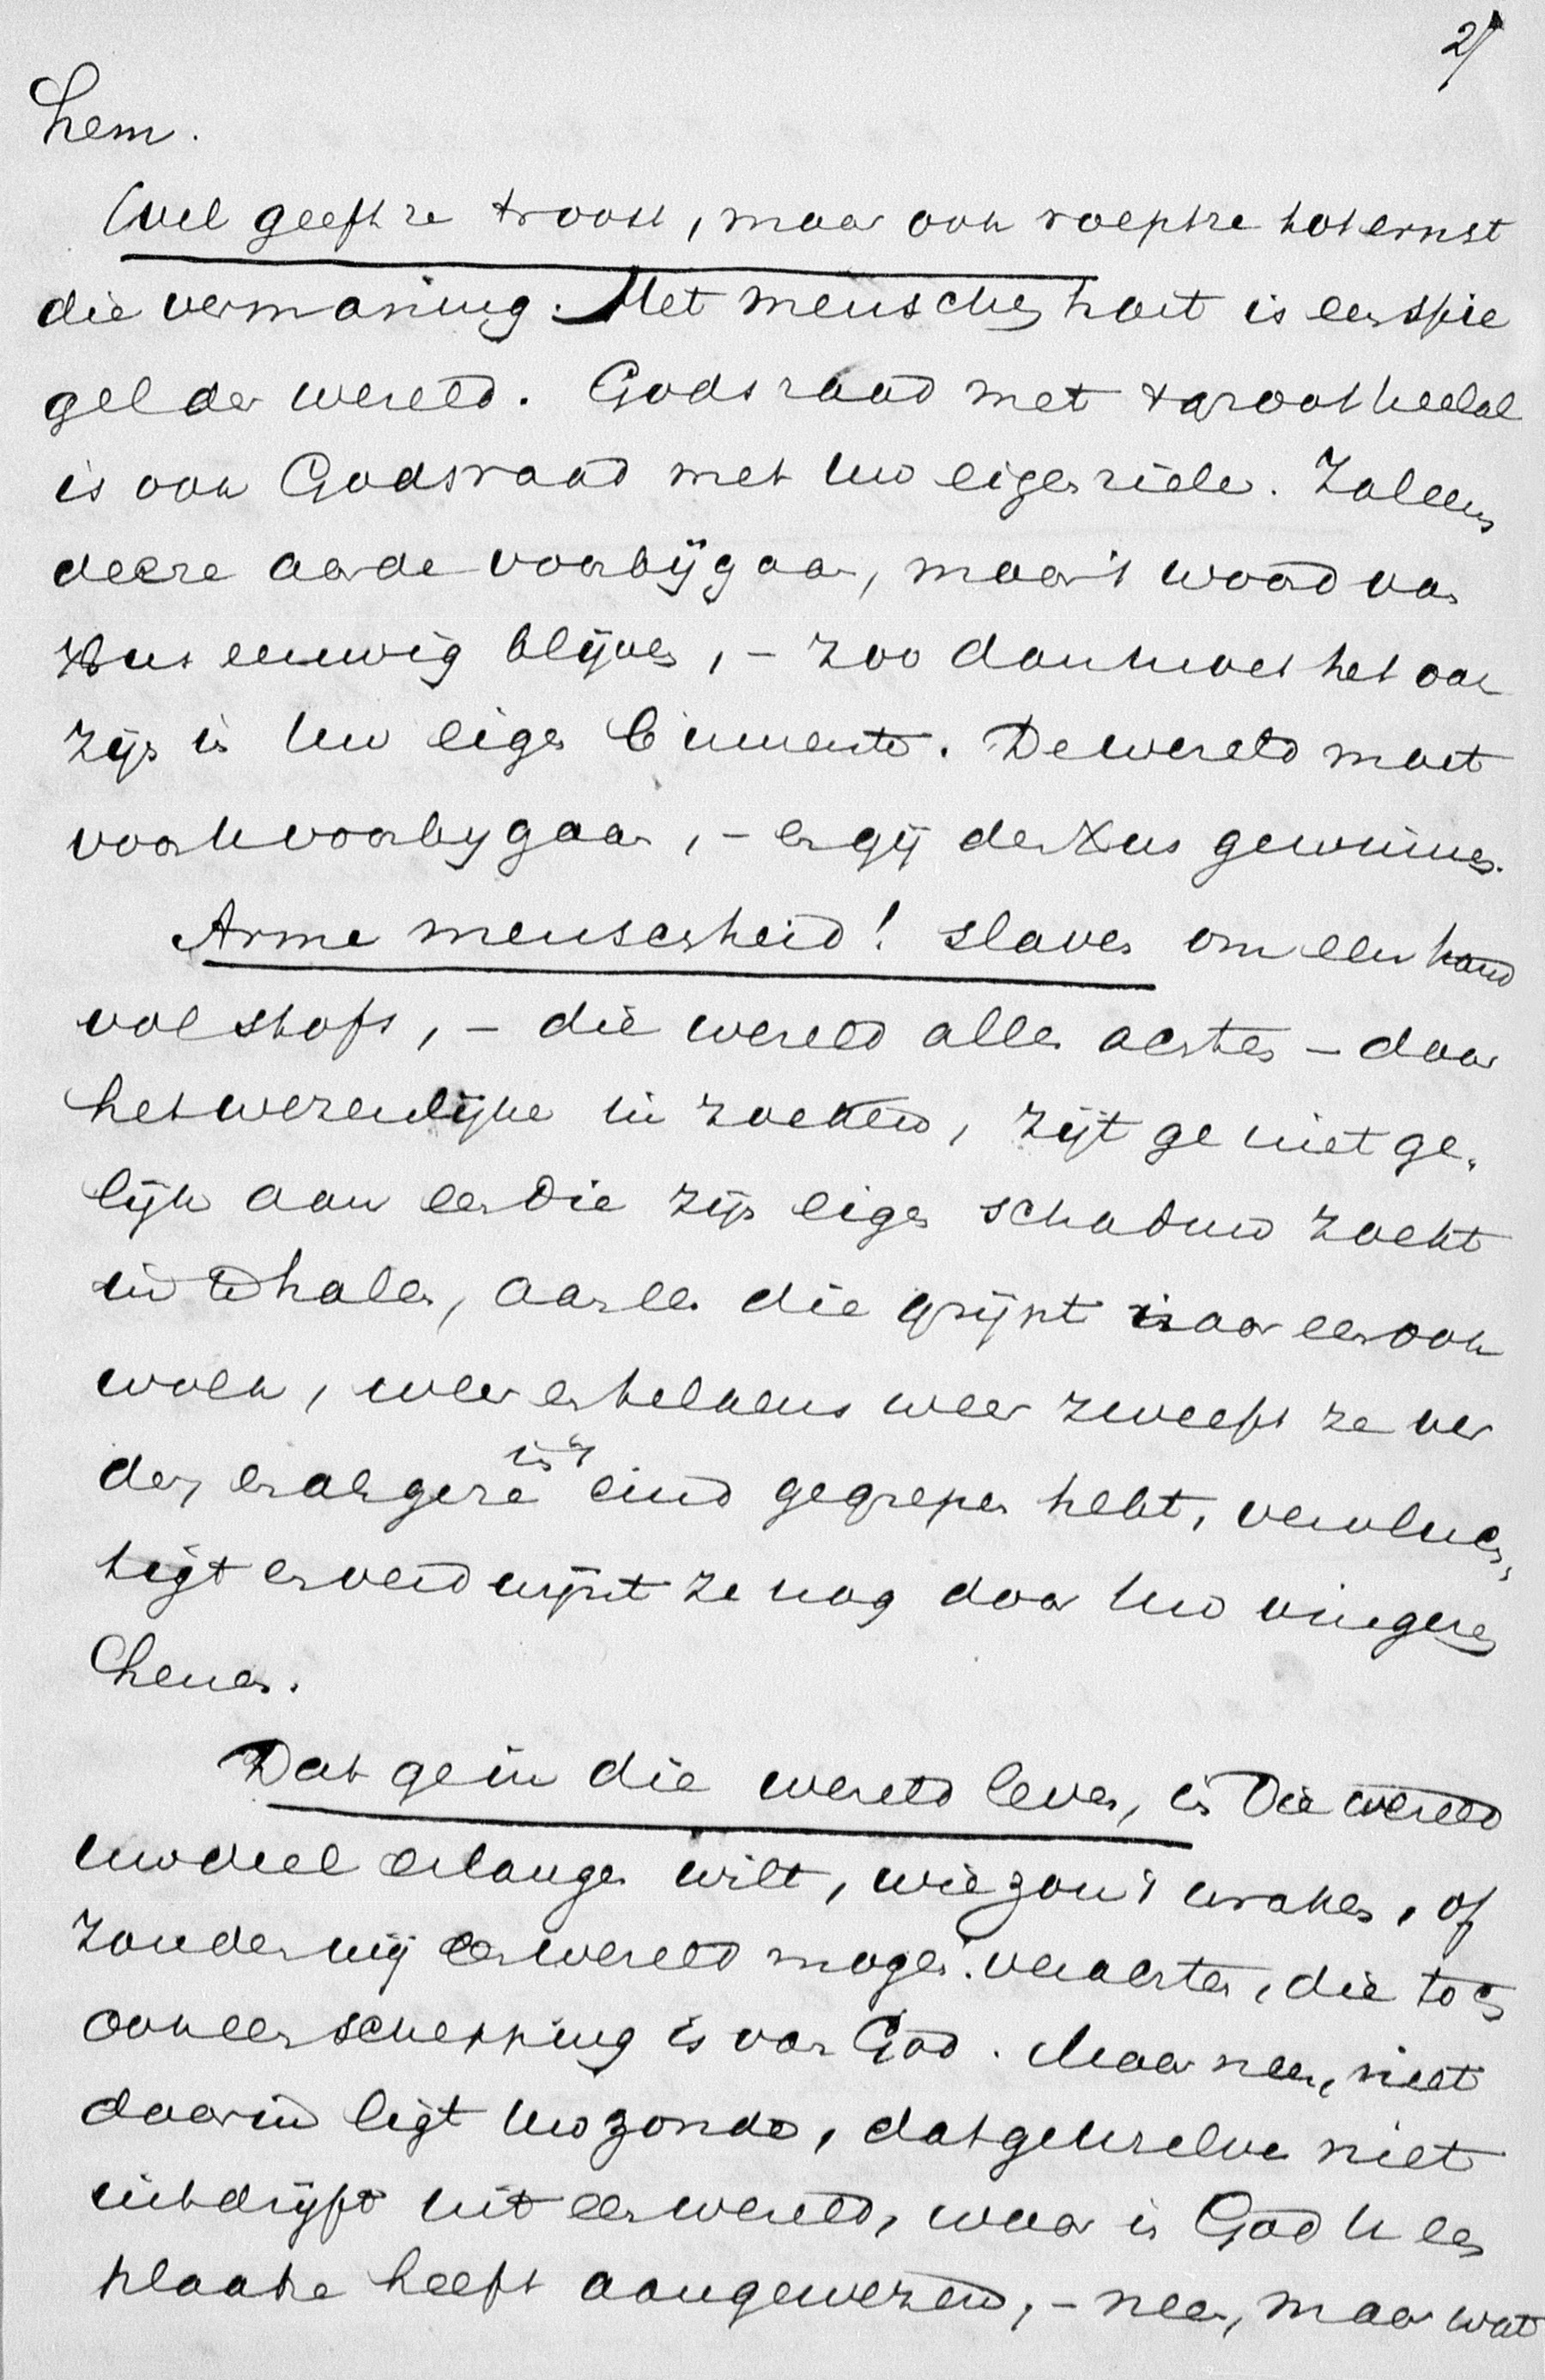 2/
hem.
Wel geeft ze troost, maar ook roept ze tot ernst
die vermaning. Het menschenhart is een spie
gel der wereld. Gods raad met 't groot heelal
is ook Gods raad met uw eigen ziele. Zal eens
deeze aarde voorbijgaan, maar 't woord van
Xtus eeuwig blijven, – zoo dan moet het ook
zijn in uw eigen binnenste. De wereld moet
voor U voorbygaan, – en gij den Xtus gewinnen.
Arme menschheid! slaven om een hand
vol stofs, – die wereld alles achten – daar
het wezenlijke in zoekend, zijt ge niet ge-
lijk aan een die zijn eigen schaduw zoekt
in te halen, aan een die grijpt naar een ook
wolk, weer en telkens weer zweeft ze ver
der, en als ge ze in 't eind gegrepen hebt, vervluch-
tigt en verdwijnt ze nog door uw vingeren
henen.
Dat ge in die wereld leven, in die wereld
uw deel erlangen wilt, wie zou 't wraken, of
zouden wij een wereld mogen verachten, die toch
ook een schepping is van God. Maar neen, niet
daarin ligt uw zonde, dat ge U zelve niet
uitdrijft uit een wereld, waar in God U een
plaatse heeft aangewezen, – neen, maar wat